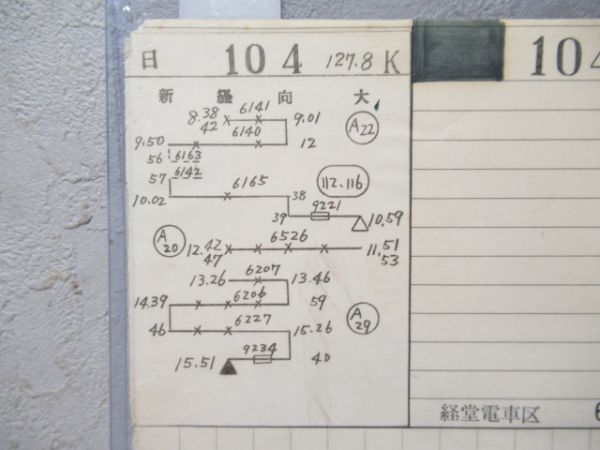 日 104 127.8K
新 経 向 大
8.38 6141 9.01 A22
42 6140
9.50 12
56 6163
57 6142
6165 38 112.116
10.02 39 9221 10.59
A20 12.42 6526 11.51
47 53
13.26 6207 13.46
14.39 6206 59
46 6227 15.26 A29
15.51 9234 40
104
経堂電車区 6